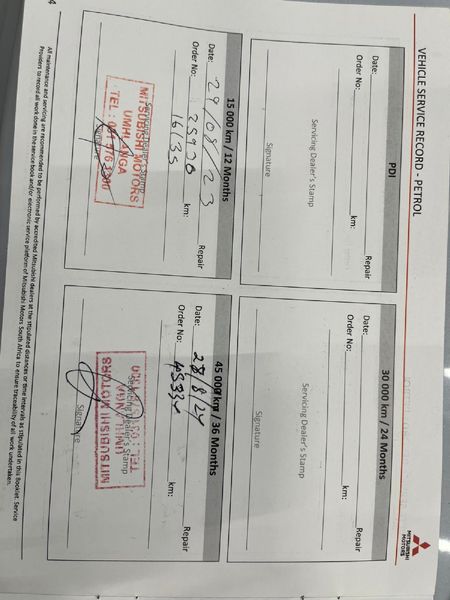 VEHICLE SERVICE RECORD - PETROL
MITSUBISHI
MOTORS
PDI
Date: Repair
Order No: km:
Servicing Dealer's Stamp
Signature
30 000 km / 24 Months
Date: Repair
Order No: km:
Servicing Dealer's Stamp
Signature
15 000 km / 12 Months
Date: 29/08/23 Repair
Order No: 25920 km:
16135
Servicing Dealer's Stamp
MITSUBISHI MOTORS
UMHLANGA
TEL: 031
Signature
45 000 km / 36 Months
Date: 28/8/24 Repair
Order No: 45334 km:
Servicing Dealer's Stamp
MITSUBISHI MOTORS
Signature
All maintenance and servicing are recommended to be performed by accredited Mitsubishi dealers at the stipulated distances or time intervals as stipulated in this Booklet. Service
Providers to record all work done in the service book and/or electronic service platform of Mitsubishi Motors South Africa to ensure traceability of all work undertaken.
4